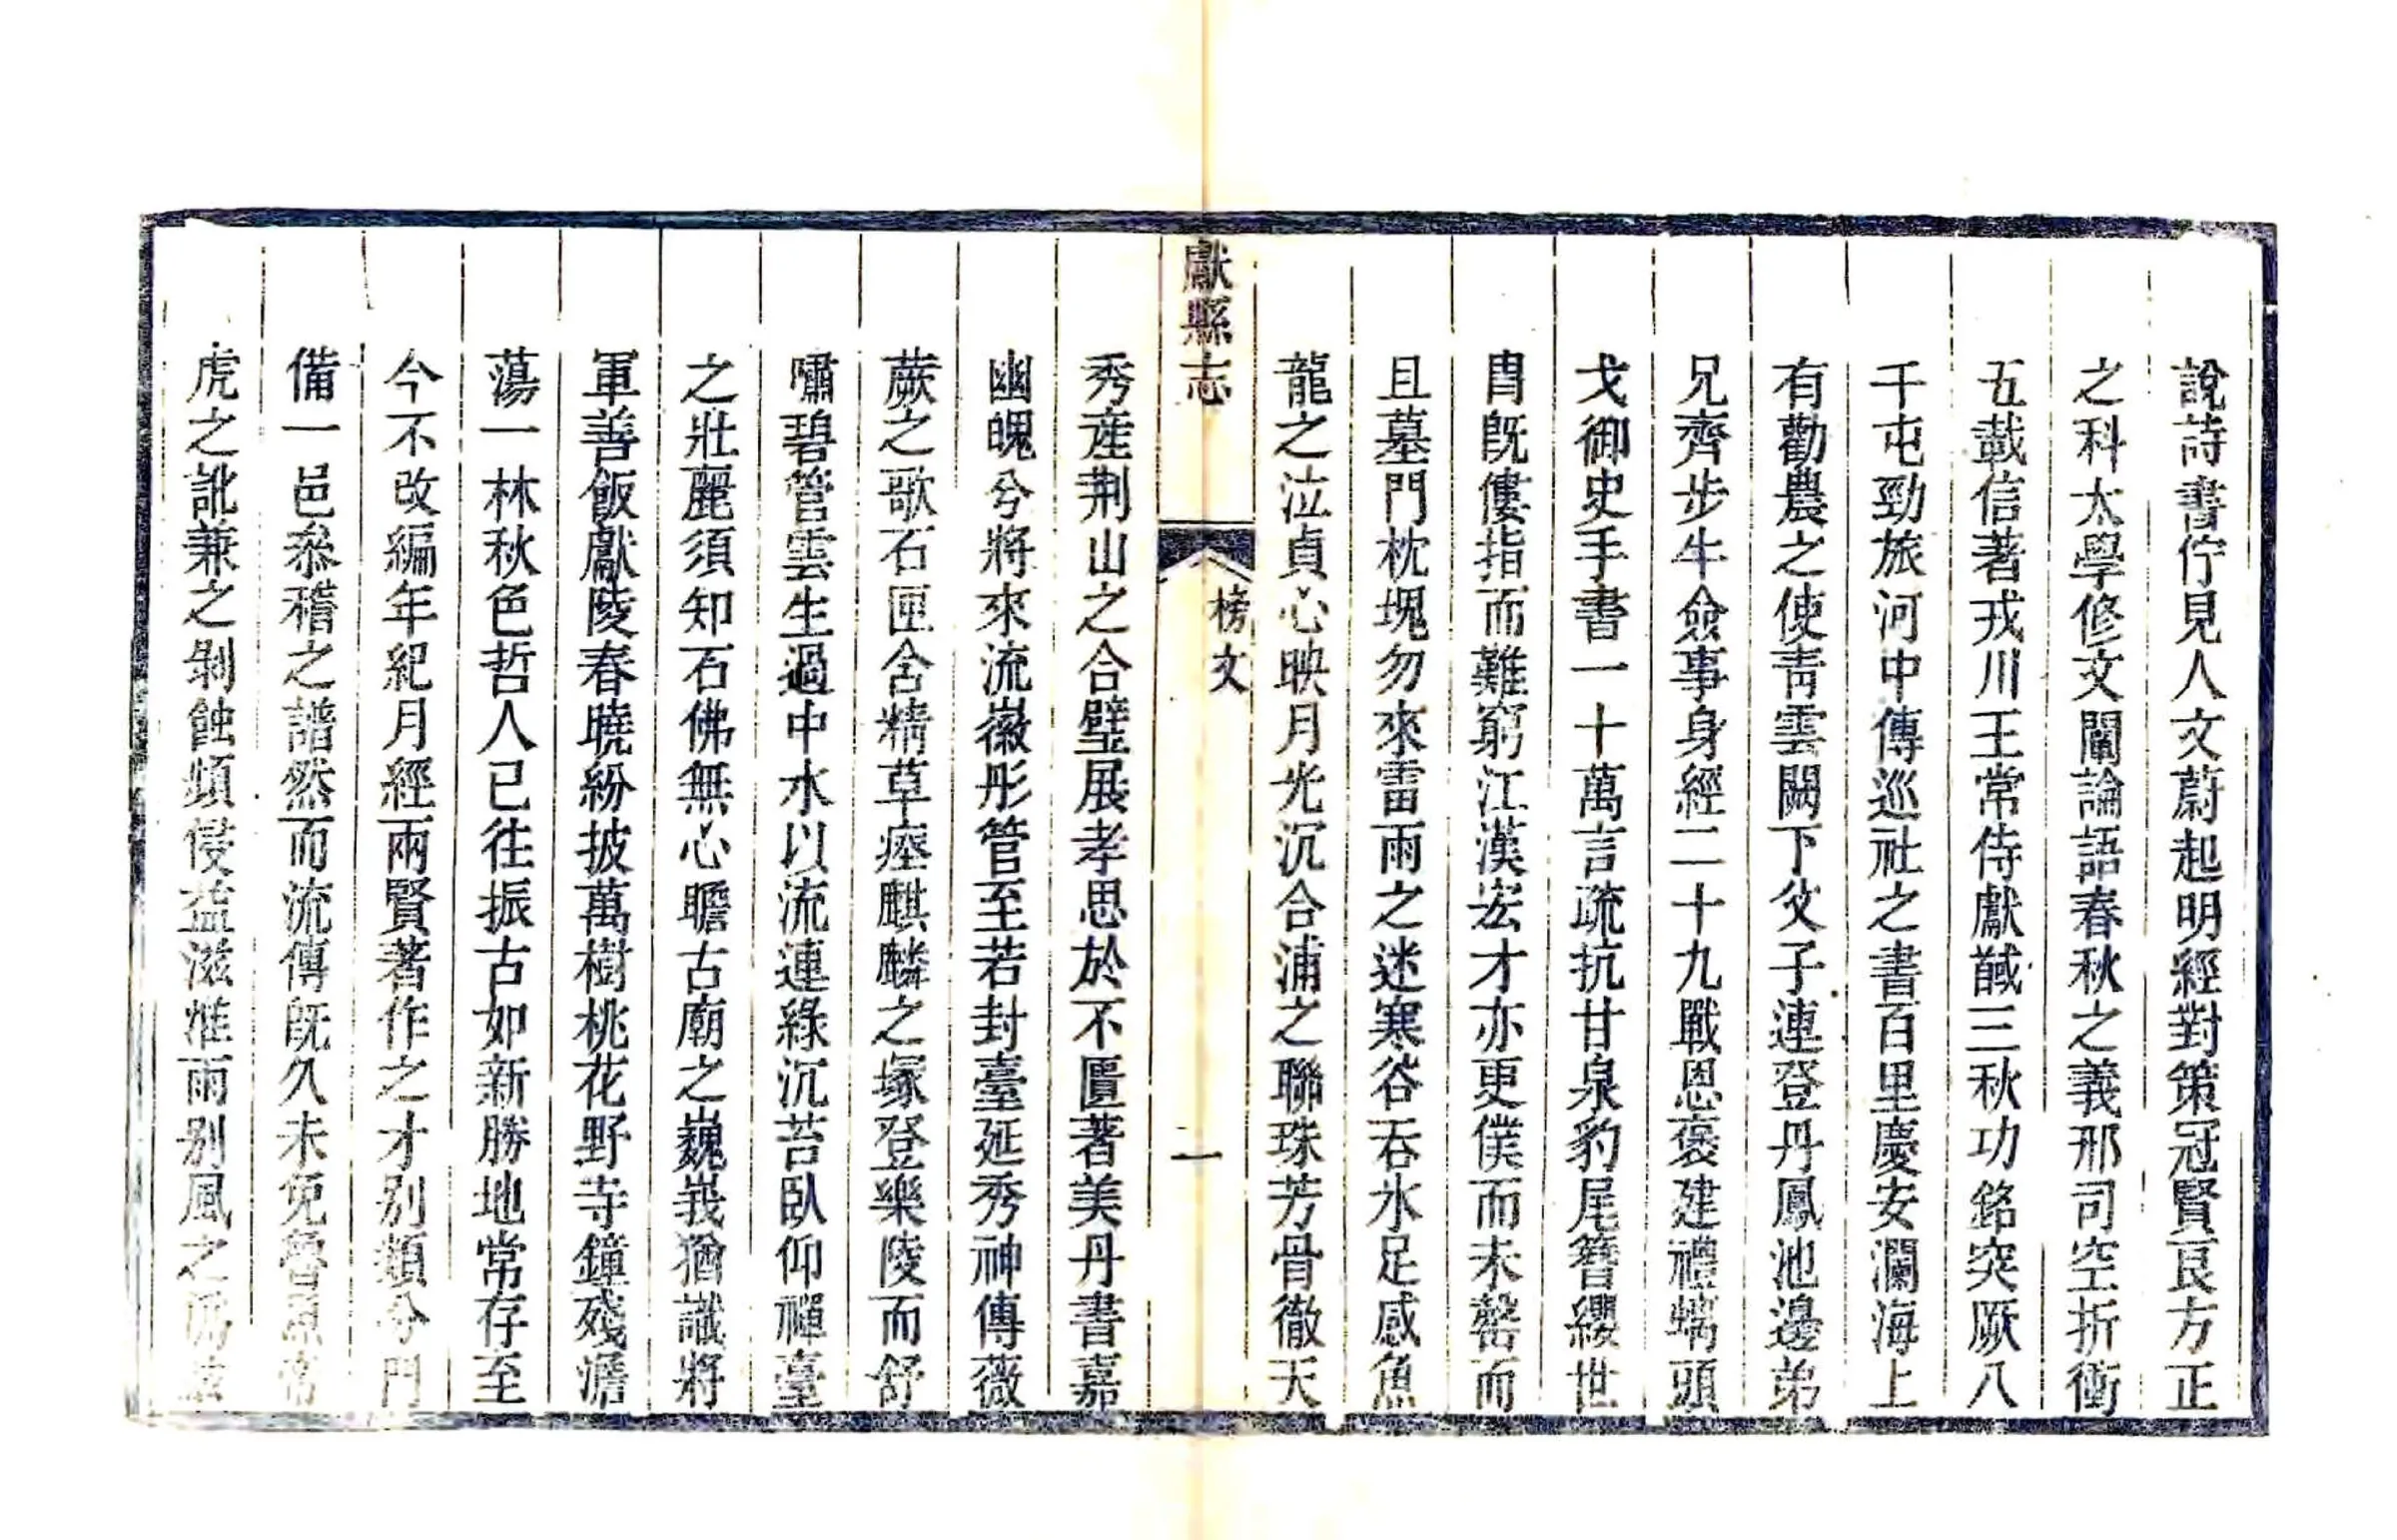 說詩書佇見人文蔚起明經對策冠賢良方正
之科太學修文闡論語春秋之義邢司空折衝
五載信著戎川王常侍獻馘三秋功銘突厥八
千屯勁旅河中傳巡社之書百里慶安瀾海上
有勸農之使靑雲闕下父子連登丹鳳池邊弟
兄齊步牛僉事身經二十九戰恩褒建禮螭頭
戈御史手書一十萬言疏抗甘泉豹尾簪纓世
胄旣僂指而難窮江漢宏才亦更僕而未罄而
且墓門枕塊勿來雷雨之迷寒谷吞氷足感魚
龍之泣貞心映月光沉合浦之聯珠芳骨徹天
獻縣志
榜文
一
秀産荆山之合璧展孝思於不匱著美丹書嘉
幽魄兮將來流徽彤管至若封臺延秀神傳薇
蕨之歌石匣舍精草瘞麒麟之塚登樂陵而舒
嘯碧管雲生過中水以流連綠沉苔臥仰禪臺
之壯麗須知石佛無心瞻古廟之巍峩猶識將
軍善飯獻陵春曉紛披萬樹桃花野寺鐘殘澹
蕩一林秋色哲人已往振古如新勝地常存至
今不改編年紀月經兩賢著作之才别類分門
備一邑叅稽之譜然而流傳旣久未免魯魚帝
虎之訛兼之剝蝕頻侵益滋淮雨别風之